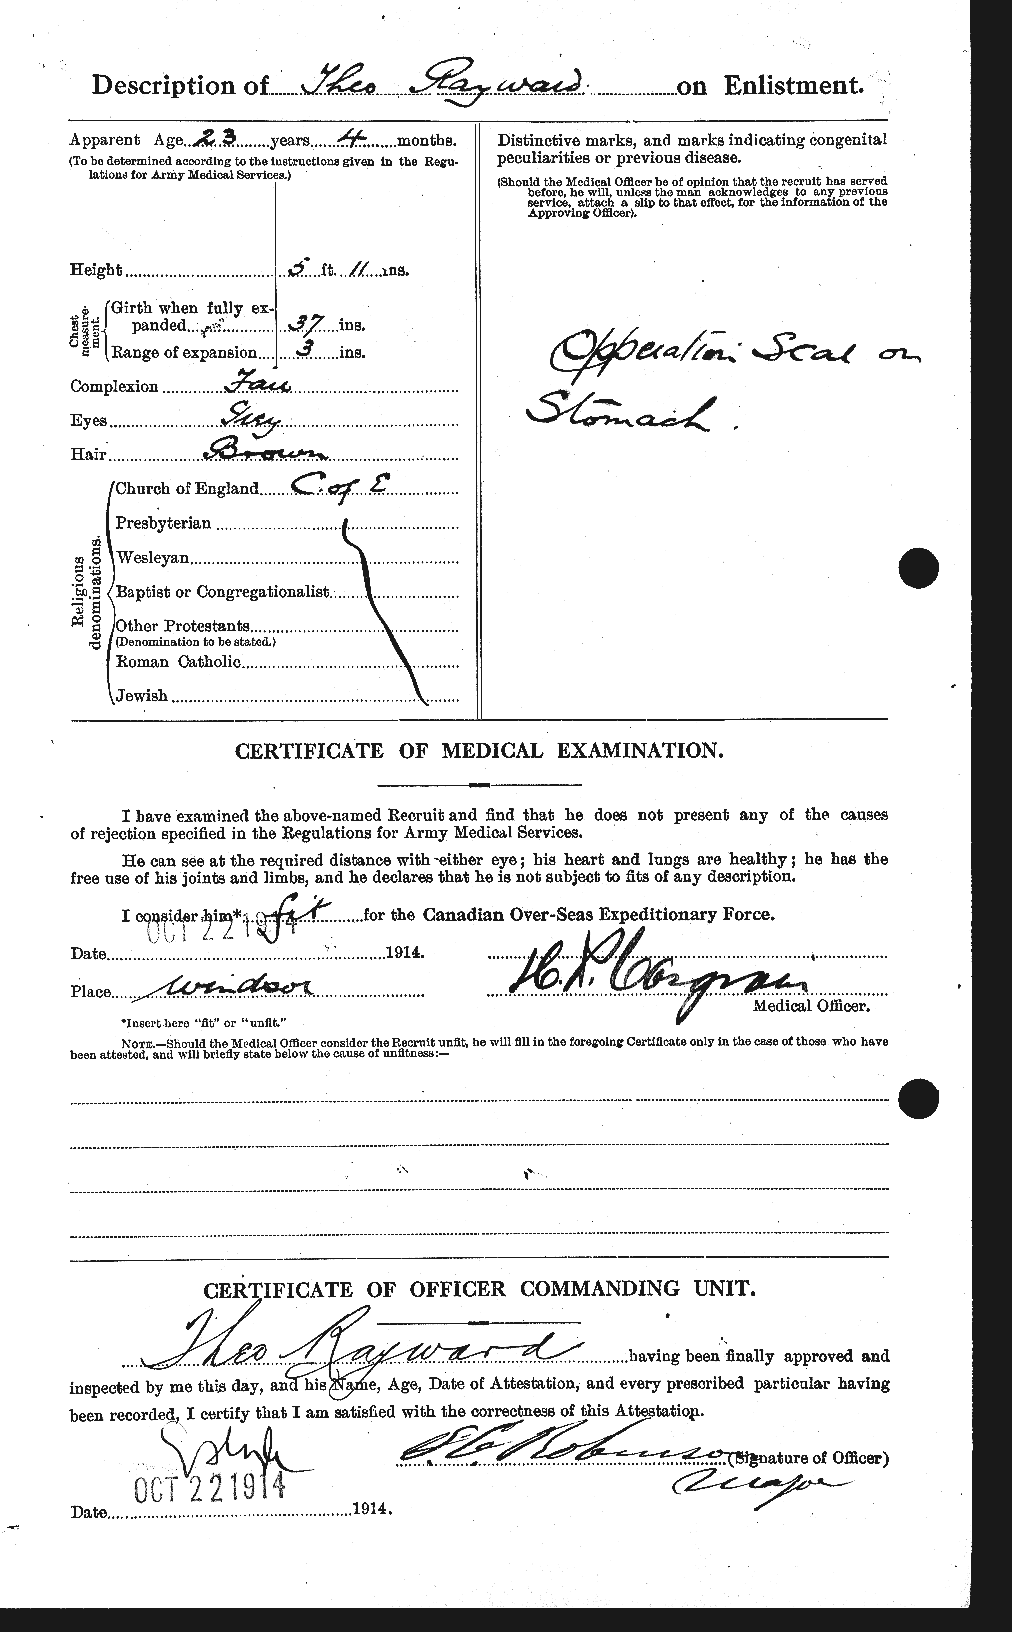 Description of Theo Rayward on Enlistment.
Apparent Age 23 years 4 months.
(To be determined according to the instructions given in the Regu-
lations for Army Medical Services.)
Height 5 ft. 11 ins.
Chest measure-ment.
Girth when fully ex-
panded 37 ins.
Range of expansion 3 ins.
Complexion Fair
Eyes Grey
Hair Brown
Religious denominations.
Church of England C. of E
Presbyterian
Wesleyan
Baptist or Congregationalist
Other Protestants
(Denomination to be stated.)
Roman Catholic
Jewish
Distinctive marks, and marks indicating congenital
peculiarities or previous disease.
(Should the Medical Officer be of opinion that the recruit has served
before, he will, unless the man acknowledges to any previous
service, attach a slip to that effect, for the information of the
Approving Officer).
Opperation Scar on
Stomach.
CERTIFICATE OF MEDICAL EXAMINATION.
I have examined the above-named Recruit and find that he does not present any of the causes
of rejection specified in the Regulations for Army Medical Services.
He can see at the required distance with either eye; his heart and lungs are healthy; he has the
free use of his joints and limbs, and he declares that he is not subject to fits of any description.
I consider him* fit for the Canadian Over-Seas Expeditionary Force.
OCT 22 1914
Date 1914.
Place Windsor
Medical Officer.
*Insert here "fit" or "unfit."
NOTE.—Should the Medical Officer consider the Recruit unfit, he will fill in the foregoing Certificate only in the case of those who have
been attested, and will briefly state below the cause of unfitness:—
CERTIFICATE OF OFFICER COMMANDING UNIT.
Theo Rayward having been finally approved and
inspected by me this day, and his Name, Age, Date of Attestation, and every prescribed particular having
been recorded, I certify that I am satisfied with the correctness of this Attestation.
E. C. Robinson (Signature of Officer)
Major
OCT 22 1914
Date 1914.